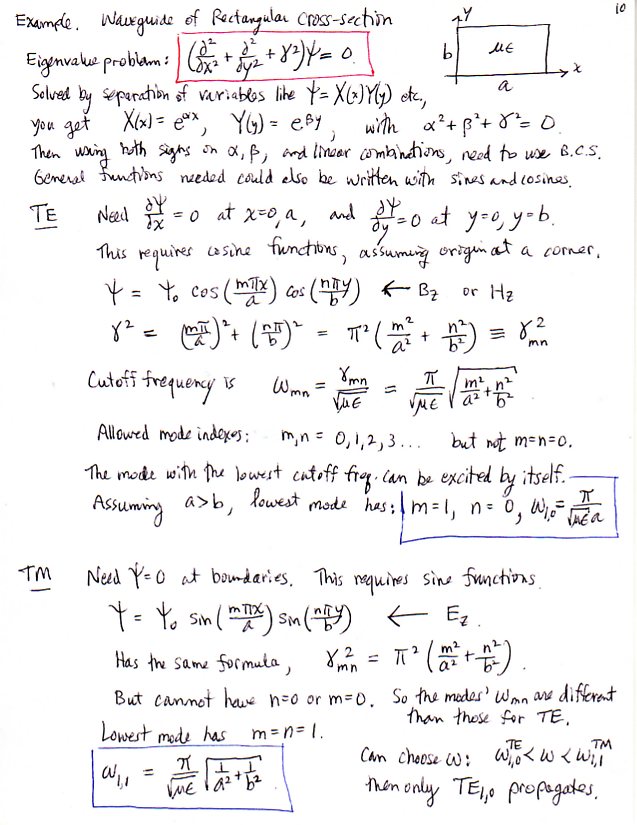 10
Example. Waveguide of Rectangular Cross-section
Eigenvalue problem: (∂²/∂x² + ∂²/∂y² + γ²)Ψ = 0.
y
b
με
x
a
Solved by separation of variables like Ψ = X(x)Y(y) etc,
you get X(x) = e^{αx}, Y(y) = e^{βy}, with α² + β² + γ² = 0.
Then using both signs on α, β, and linear combinations, need to use B.C.S.
General functions needed could also be written with sines and cosines.
TE Need ∂Ψ/∂x = 0 at x=0, a, and ∂Ψ/∂y = 0 at y=0, y=b.
This requires cosine functions, assuming origin at a corner.
Ψ = Ψ₀ cos(mπx/a) cos(nπy/b) ← B_z or H_z
γ² = (mπ/a)² + (nπ/b)² = π²(m²/a² + n²/b²) ≡ γ²_mn
Cutoff frequency is ω_mn = γ_mn/√με = π/√με √(m²/a² + n²/b²)
Allowed mode indexes: m,n = 0,1,2,3... but not m=n=0.
The mode with the lowest cutoff freq. can be excited by itself.
Assuming a>b, lowest mode has: m=1, n=0, ω_{1,0} = π/(√με a)
TM Need Ψ=0 at boundaries. This requires sine functions.
Ψ = Ψ₀ sin(mπx/a) sin(nπy/b) ← E_z
Has the same formula, γ²_mn = π²(m²/a² + n²/b²).
But cannot have n=0 or m=0. So the modes' ω_mn are different
than those for TE.
Lowest mode has m=n=1.
ω_{1,1} = π/√με √(1/a² + 1/b²)
Can choose ω: ω^{TE}_{1,0} < ω < ω^{TM}_{1,1}
then only TE_{1,0} propagates.